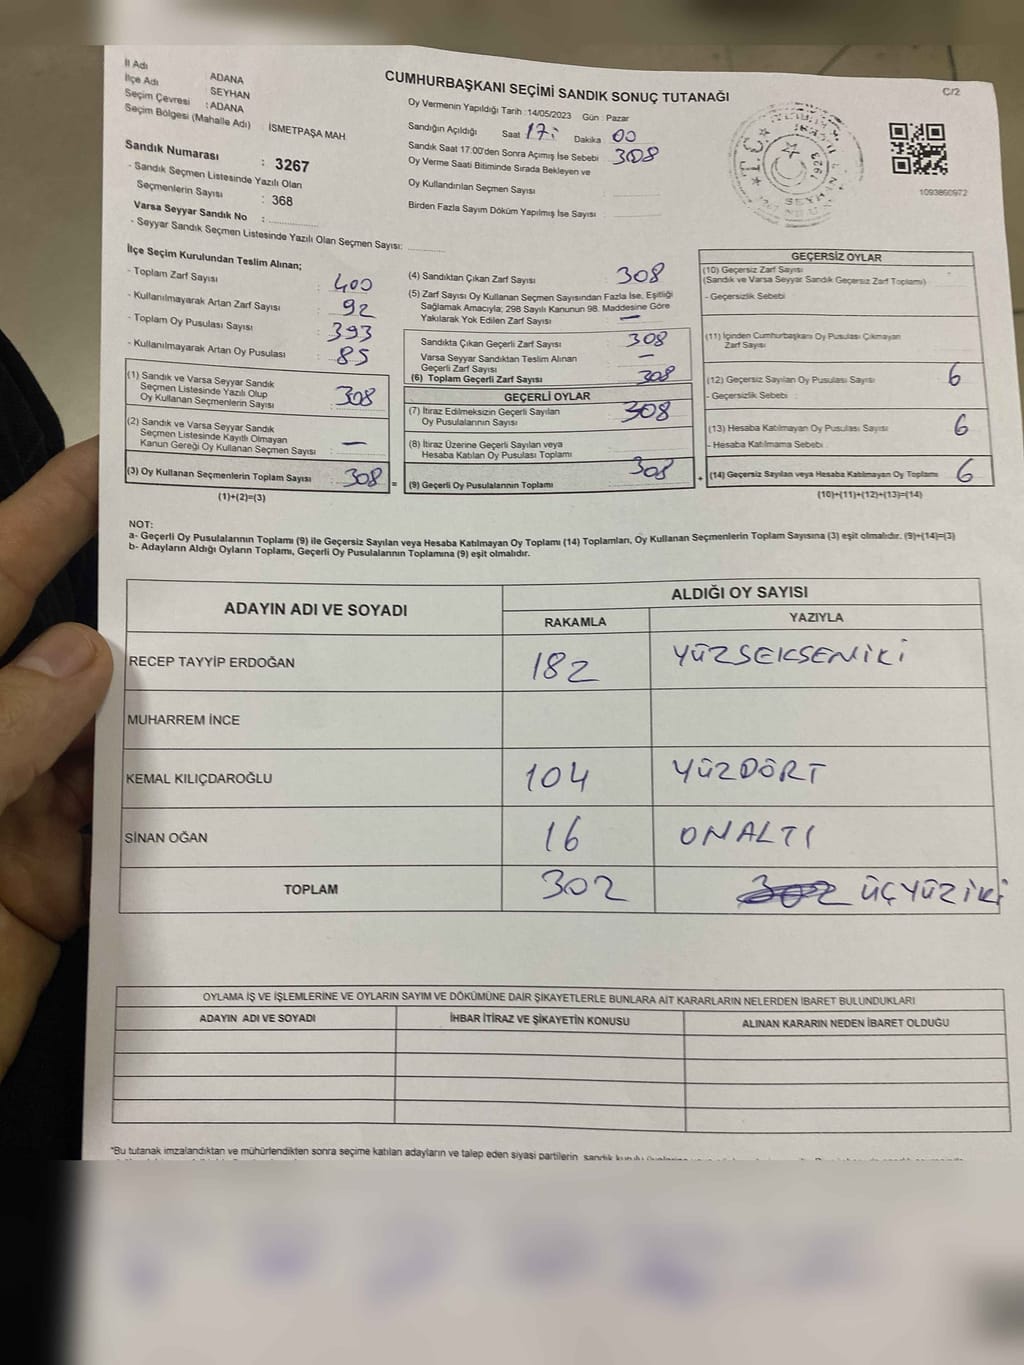 İl Adı
ADANA
İlçe Adı
: SEYHAN
Seçim Çevresi : ADANA
Seçim Bölgesi (Mahalle Adı) : İSMETPAŞA MAH
Sandık Numarası : 3267
- Sandık Seçmen Listesinde Yazılı Olan
Seçmenlerin Sayısı : 368
Varsa Seyyar Sandık No :
- Seyyar Sandık Seçmen Listesinde Yazılı Olan Seçmen Sayısı:
CUMHURBAŞKANI SEÇİMİ SANDIK SONUÇ TUTANAĞI
C/2
Oy Vermenin Yapıldığı Tarih : 14/05/2023 Gün : Pazar
Sandığın Açıldığı Saat 17: Dakika 00
Sandık Saat 17:00'den Sonra Açımış İse Sebebi 308
Oy Verme Saati Bitiminde Sırada Bekleyen ve
Oy Kullandırılan Seçmen Sayısı
Birden Fazla Sayım Döküm Yapılmış İse Sayısı
T.C.
SEYHAN
3267
1093860972
İlçe Seçim Kurulundan Teslim Alınan;
- Toplam Zarf Sayısı : 400
- Kullanılmayarak Artan Zarf Sayısı : 92
- Toplam Oy Pusulası Sayısı : 393
- Kullanılmayarak Artan Oy Pusulası : 85
(1) Sandık ve Varsa Seyyar Sandık
Seçmen Listesinde Yazılı Olup
Oy Kullanan Seçmenlerin Sayısı : 308
(2) Sandık ve Varsa Seyyar Sandık
Seçmen Listesinde Kayıtlı Olmayan
Kanun Gereği Oy Kullanan Seçmen Sayısı : —
(3) Oy Kullanan Seçmenlerin Toplam Sayısı : 308
(1)+(2)=(3)
=
(4) Sandıktan Çıkan Zarf Sayısı : 308
(5) Zarf Sayısı Oy Kullanan Seçmen Sayısından Fazla İse, Eşitliği
Sağlamak Amacıyla; 298 Sayılı Kanunun 98. Maddesine Göre
Yakılarak Yok Edilen Zarf Sayısı : —
Sandıkta Çıkan Geçerli Zarf Sayısı : 308
Varsa Seyyar Sandıktan Teslim Alınan
Geçerli Zarf Sayısı : —
(6) Toplam Geçerli Zarf Sayısı : 308
GEÇERLİ OYLAR
(7) İtiraz Edilmeksizin Geçerli Sayılan
Oy Pusulalarının Sayısı : 308
(8) İtiraz Üzerine Geçerli Sayılan veya
Hesaba Katılan Oy Pusulası Toplamı
(9) Geçerli Oy Pusulalarının Toplamı : 308
+
GEÇERSİZ OYLAR
(10) Geçersiz Zarf Sayısı
(Sandık ve Varsa Seyyar Sandık Geçersiz Zarf Toplamı)
- Geçersizlik Sebebi
(11) İçinden Cumhurbaşkanı Oy Pusulası Çıkmayan
Zarf Sayısı
(12) Geçersiz Sayılan Oy Pusulası Sayısı : 6
- Geçersizlik Sebebi :
(13) Hesaba Katılmayan Oy Pusulası Sayısı : 6
- Hesaba Katılmama Sebebi :
(14) Geçersiz Sayılan veya Hesaba Katılmayan Oy Toplamı : 6
(10)+(11)+(12)+(13)=(14)
NOT:
a- Geçerli Oy Pusulalarının Toplamı (9) ile Geçersiz Sayılan veya Hesaba Katılmayan Oy Toplamı (14) Toplamları, Oy Kullanan Seçmenlerin Toplam Sayısına (3) eşit olmalıdır. (9)+(14)=(3)
b- Adayların Aldığı Oyların Toplamı, Geçerli Oy Pusulalarının Toplamına (9) eşit olmalıdır.
ADAYIN ADI VE SOYADI
ALDIĞI OY SAYISI
RAKAMLA YAZIYLA
RECEP TAYYİP ERDOĞAN 182 YÜZSEKSENİKİ
MUHARREM İNCE
KEMAL KILIÇDAROĞLU 104 YÜZDÖRT
SİNAN OĞAN 16 ONALTI
TOPLAM 302 302 ÜÇYÜZİKİ
OYLAMA İŞ VE İŞLEMLERİNE VE OYLARIN SAYIM VE DÖKÜMÜNE DAİR ŞİKAYETLERLE BUNLARA AİT KARARLARIN NELERDEN İBARET BULUNDUKLARI
ADAYIN ADI VE SOYADI İHBAR İTİRAZ VE ŞİKAYETİN KONUSU ALINAN KARARIN NEDEN İBARET OLDUĞU
*Bu tutanak imzalandıktan ve mühürlendikten sonra seçime katılan adayların ve talep eden siyasi partilerin sandık kurulu